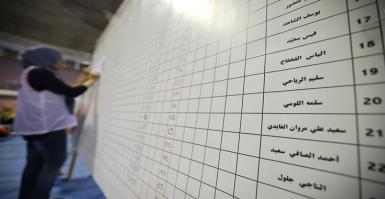 منصور
يوسف الشاهد
17
قيس سعيد
18
الياس الفخفاخ
19
سليم الرياحي
20
سلمه اللومي
21
سعيد علي مروان العايدي
22
أحمد الصافي سعيد
الناجي جلول